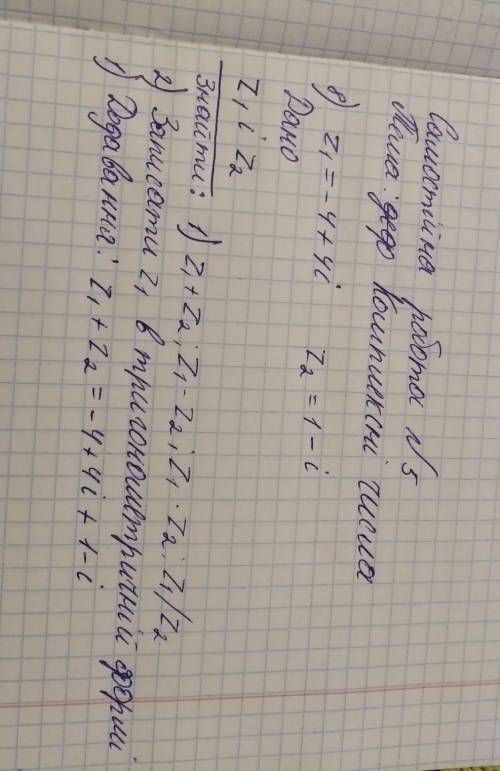 Самостійна робота №5
Тема: Комплексні числа
8) Z₁ = -4 + 4i    Z₂ = 1 - i
Дано
Z₁ і Z₂
Знайти: 1) Z₁ + Z₂; Z₁ - Z₂; Z₁ · Z₂; Z₁/Z₂
2) Записати Z₁ в тригонометричній формі
1) Додавання: Z₁ + Z₂ = -4 + 4i + 1 - i